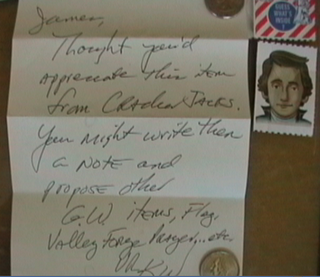 James,
Thought you'd
appreciate this item
from CRACKER JACKS.
You might write them
a NOTE and
propose other
G.W. items, Flag,
Valley Forge Prayer,...etc.